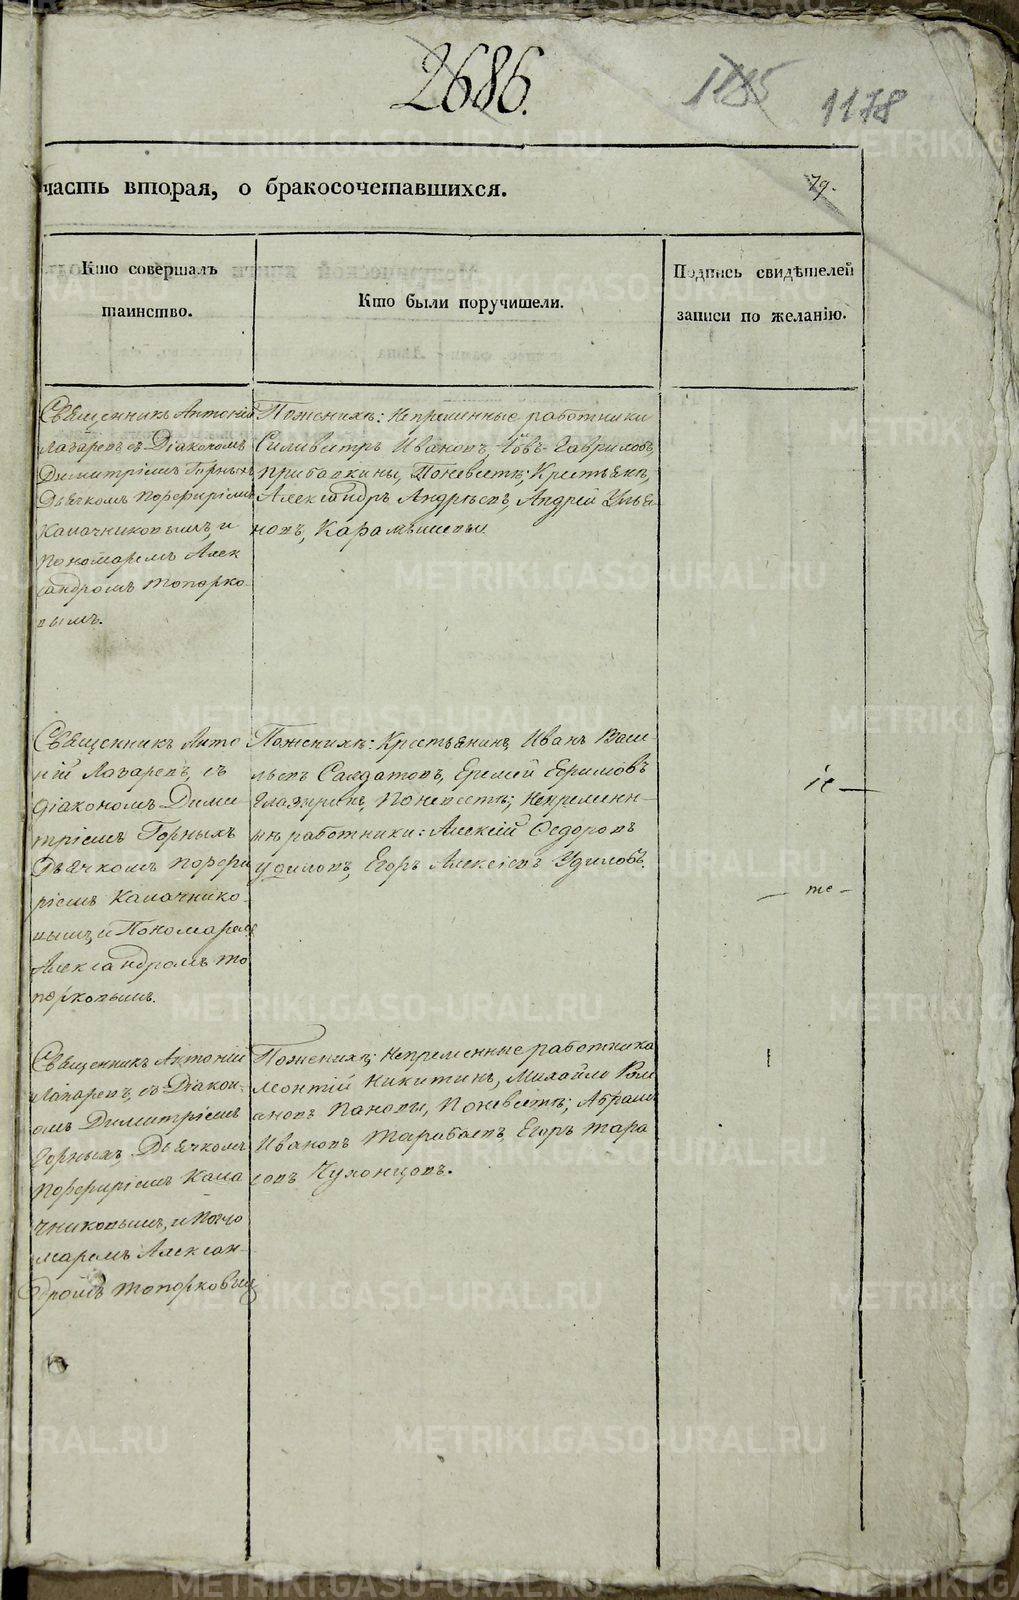 2686.
1185
1178
часть вторая, о бракосочетавшихся.
79.
Кто совершалъ
таинство.
Кто были поручители.
Подпись свидѣтелей
записи по желанію.
Священникъ Антоній
Лазаревъ съ Діакономъ
Димитріемъ Горныхъ
Дьячкомъ Порфиріемъ
Калачниковымъ, и
Пономаремъ Алек
сандромъ Топорко
вымъ.
Пожениxѣ: Непременные работники
Силивестръ Ивановъ, Іовъ Гавриловъ
Прибавкины, Поневестѣ; Крестьяне,
Александръ Андреевъ, Андрей Улья
новъ, Карамышевы.
Священникъ Анто
ній Лазаревъ, съ
діакономъ Дими
тріемъ Горныхъ
Дьячкомъ Порфи
ріемъ Калачнико
вымъ, и Пономаремъ
Александромъ То
порковымъ.
Пожениxѣ: Крестьянинъ Иванъ Васи
льевъ Солдатовъ, Еремей Ефимовъ
Поневестѣ; Непременн
ые работники: Алексѣй Федоровъ
Удиловъ, Егоръ Алексѣевъ Удиловъ.
іе —
— те —
Священникъ Антоній
Лазаревъ, съ Діакон
омъ Димитріемъ
Горныхъ, Дьячкомъ
Порфиріемъ Кала
чниковымъ, и Поно
маремъ Алексан
дромъ Топорковымъ
Пожениxѣ; Непременные работника
Леонтій Никитинъ, Михайло Ром
ановъ Пановы, Поневестѣ; Абрамъ
Ивановъ Тарабаевъ, Егоръ Тара
совъ Чухонцовъ.
METRIKI.GASO-URAL.RU